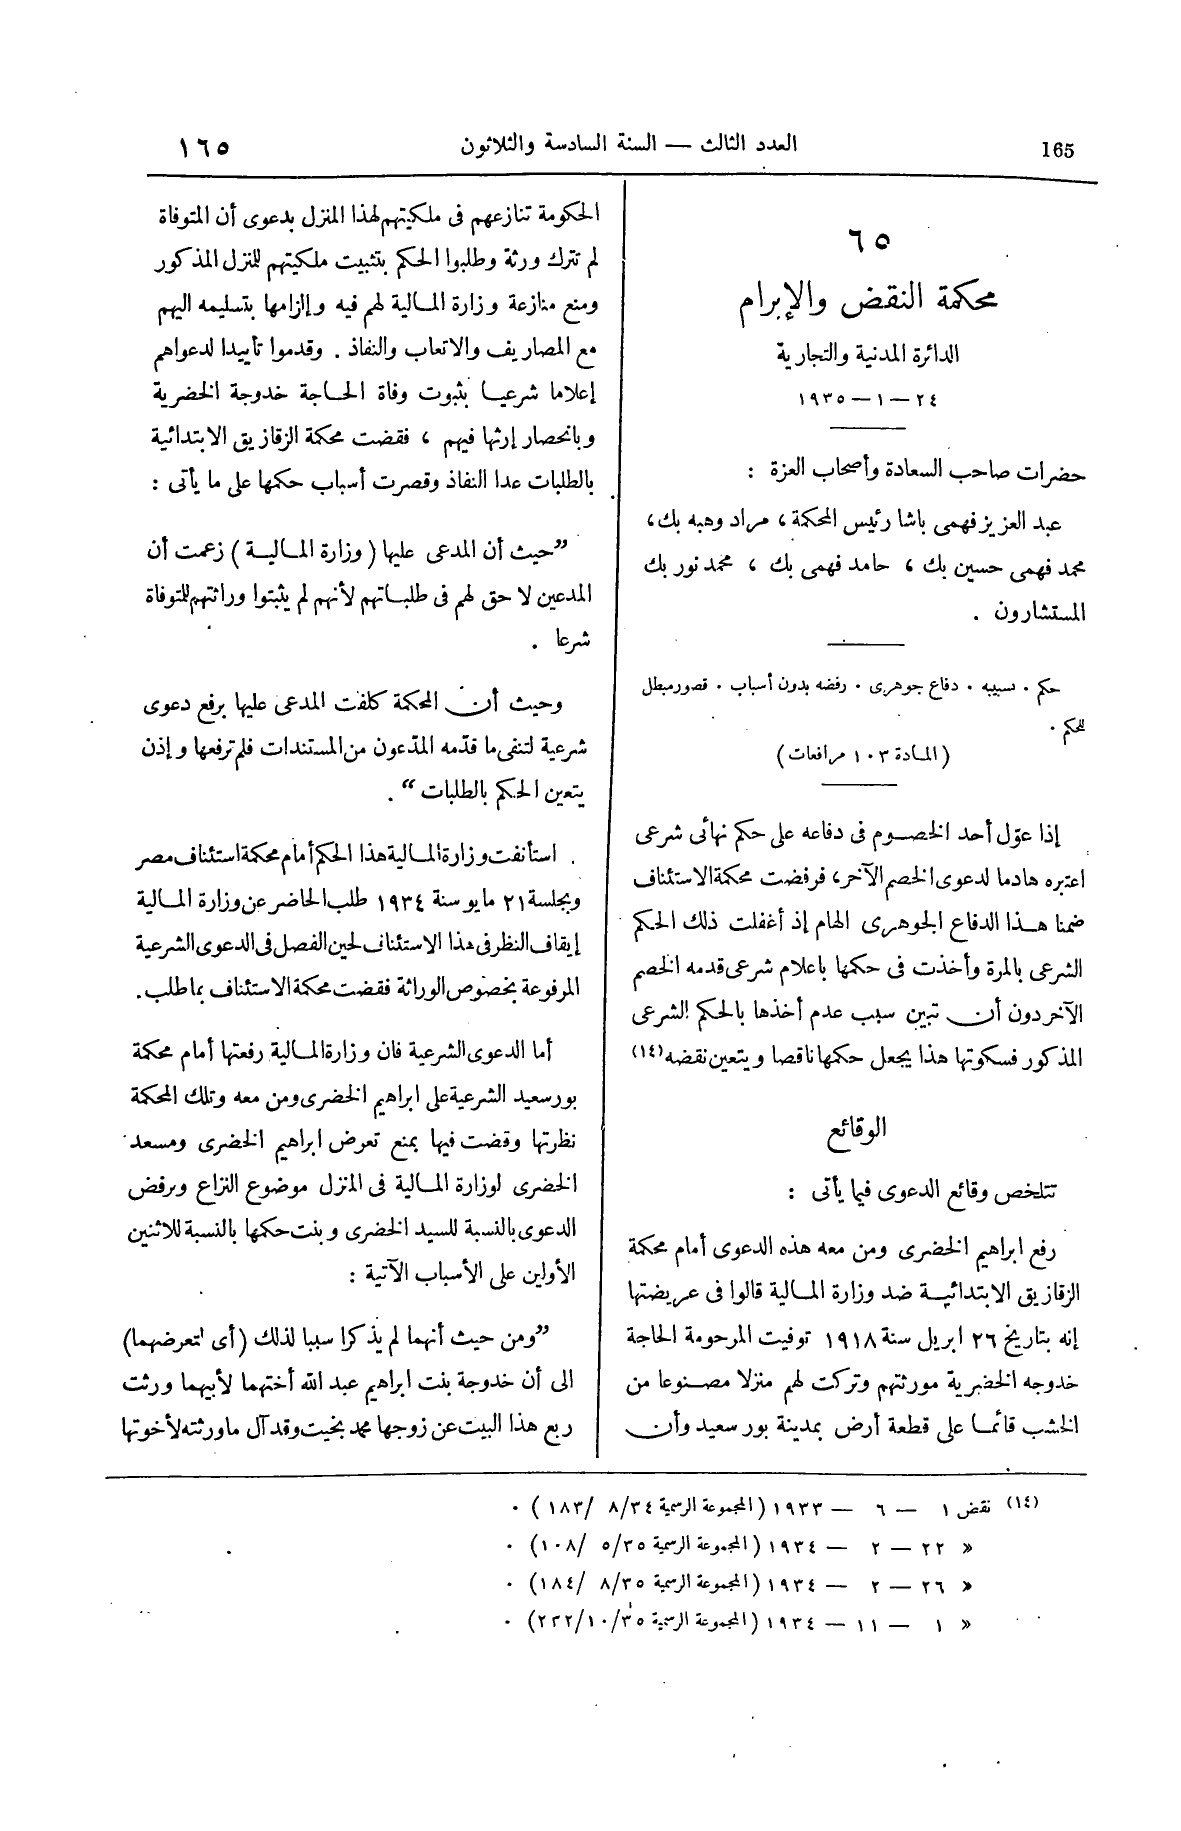 165 العدد الثالث — السنة السادسة والثلاثون ١٦٥
٦٥
محكمة النقض والإبرام
الدائرة المدنية والتجارية
٢٤ — ١ — ١٩٣٥
حضرات صاحب السعادة وأصحاب العزة :
عبد العزيز فهمى باشا رئيس المحكمة ، مراد وهبه بك ،
محمد فهمى حسين بك ، حامد فهمى بك ، محمد نور بك
المستشارون .
حكم . تسبيبه . دفاع جوهرى . رفضه بدون أسباب . قصور مبطل
للحكم .
(المادة ١٠٣ مرافعات)
إذا عوّل أحد الخصوم فى دفاعه على حكم نهائى شرعى
اعتبره هادما لدعوى الخصم الآخر، فرفضت محكمة الاستئناف
ضمنا هذا الدفاع الجوهرى الهام إذ أغفلت ذلك الحكم
الشرعى بالمرة وأخذت فى حكمها باعلام شرعى قدمه الخصم
الآخر دون أن تبين سبب عدم أخذها بالحكم الشرعى
المذكور فسكوتها هذا يجعل حكمها ناقصا ويتعين نقضه (١٤)
الوقائع
تتلخص وقائع الدعوى فيما يأتى :
رفع ابراهيم الخضرى ومن معه هذه الدعوى أمام محكمة
الزقازيق الابتدائية ضد وزارة المالية قالوا فى عريضتها
إنه بتاريخ ٢٦ ابريل سنة ١٩١٨ توفيت المرحومة الحاجة
خدوجه الخضرية مورثتهم وتركت لهم منزلا مصنوعا من
الخشب قائما على قطعة أرض بمدينة بور سعيد وأن
الحكومة تنازعهم فى ملكيتهم لهذا المنزل بدعوى أن المتوفاة
لم تترك ورثة وطلبوا الحكم بتثبيت ملكيتهم للمنزل المذكور
ومنع منازعة وزارة المالية لهم فيه وإلزامها بتسليمه اليهم
مع المصاريف والاتعاب والنفاذ . وقدموا تأييدا لدعواهم
إعلاما شرعيا بثبوت وفاة الحاجة خدوجة الخضرية
وبانحصار إرثها فيهم ، فقضت محكمة الزقازيق الابتدائية
بالطلبات عدا النفاذ وقصرت أسباب حكمها على ما يأتى :
”حيث أن المدعى عليها (وزارة المالية) زعمت أن
المدعين لا حق لهم فى طلباتهم لأنهم لم يثبتوا وراثتهم للمتوفاة
شرعا .
وحيث أن المحكمة كلفت المدعى عليها برفع دعوى
شرعية لتنفى ما قدّمه المدّعون من المستندات فلم ترفعها وإذن
يتعين الحكم بالطلبات“ .
استأنفت وزارة المالية هذا الحكم أمام محكمة استئناف مصر
وبجلسة ٢١ مايو سنة ١٩٣٤ طلب الحاضر عن وزارة المالية
إيقاف النظر فى هذا الاستئناف لحين الفصل فى الدعوى الشرعية
المرفوعة بخصوص الوراثة فقضت محكمة الاستئناف بما طلب .
أما الدعوى الشرعية فان وزارة المالية رفعتها أمام محكمة
بور سعيد الشرعية على ابراهيم الخضرى ومن معه وتلك المحكمة
نظرتها وقضت فيها بمنع تعرض ابراهيم الخضرى ومسعد
الخضرى لوزارة المالية فى المنزل موضوع النزاع وبرفض
الدعوى بالنسبة للسيد الخضرى وبنت حكمها بالنسبة للاثنين
الأولين على الأسباب الآتية :
”ومن حيث أنهما لم يذكرا سببا لذلك (أى لتعرضهما)
الى أن خدوجة بنت ابراهيم عبد الله أختهما لأبيهما ورثت
ربع هذا البيت عن زوجها محمد بخيت وقد آل ما ورثته لأخوتها
(١٤) نقض ١ — ٦ — ١٩٣٣ (المجموعة الرسمية ٨/٣٤ /١٨٣) .
» ٢٢ — ٢ — ١٩٣٤ (المجموعة الرسمية ٥/٣٥ /١٠٨) .
» ٢٦ — ٢ — ١٩٣٤ (المجموعة الرسمية ٨/٣٥ /١٨٤) .
» ١ — ١١ — ١٩٣٤ (المجموعة الرسمية ١٠/٣٥/٢٣٢) .